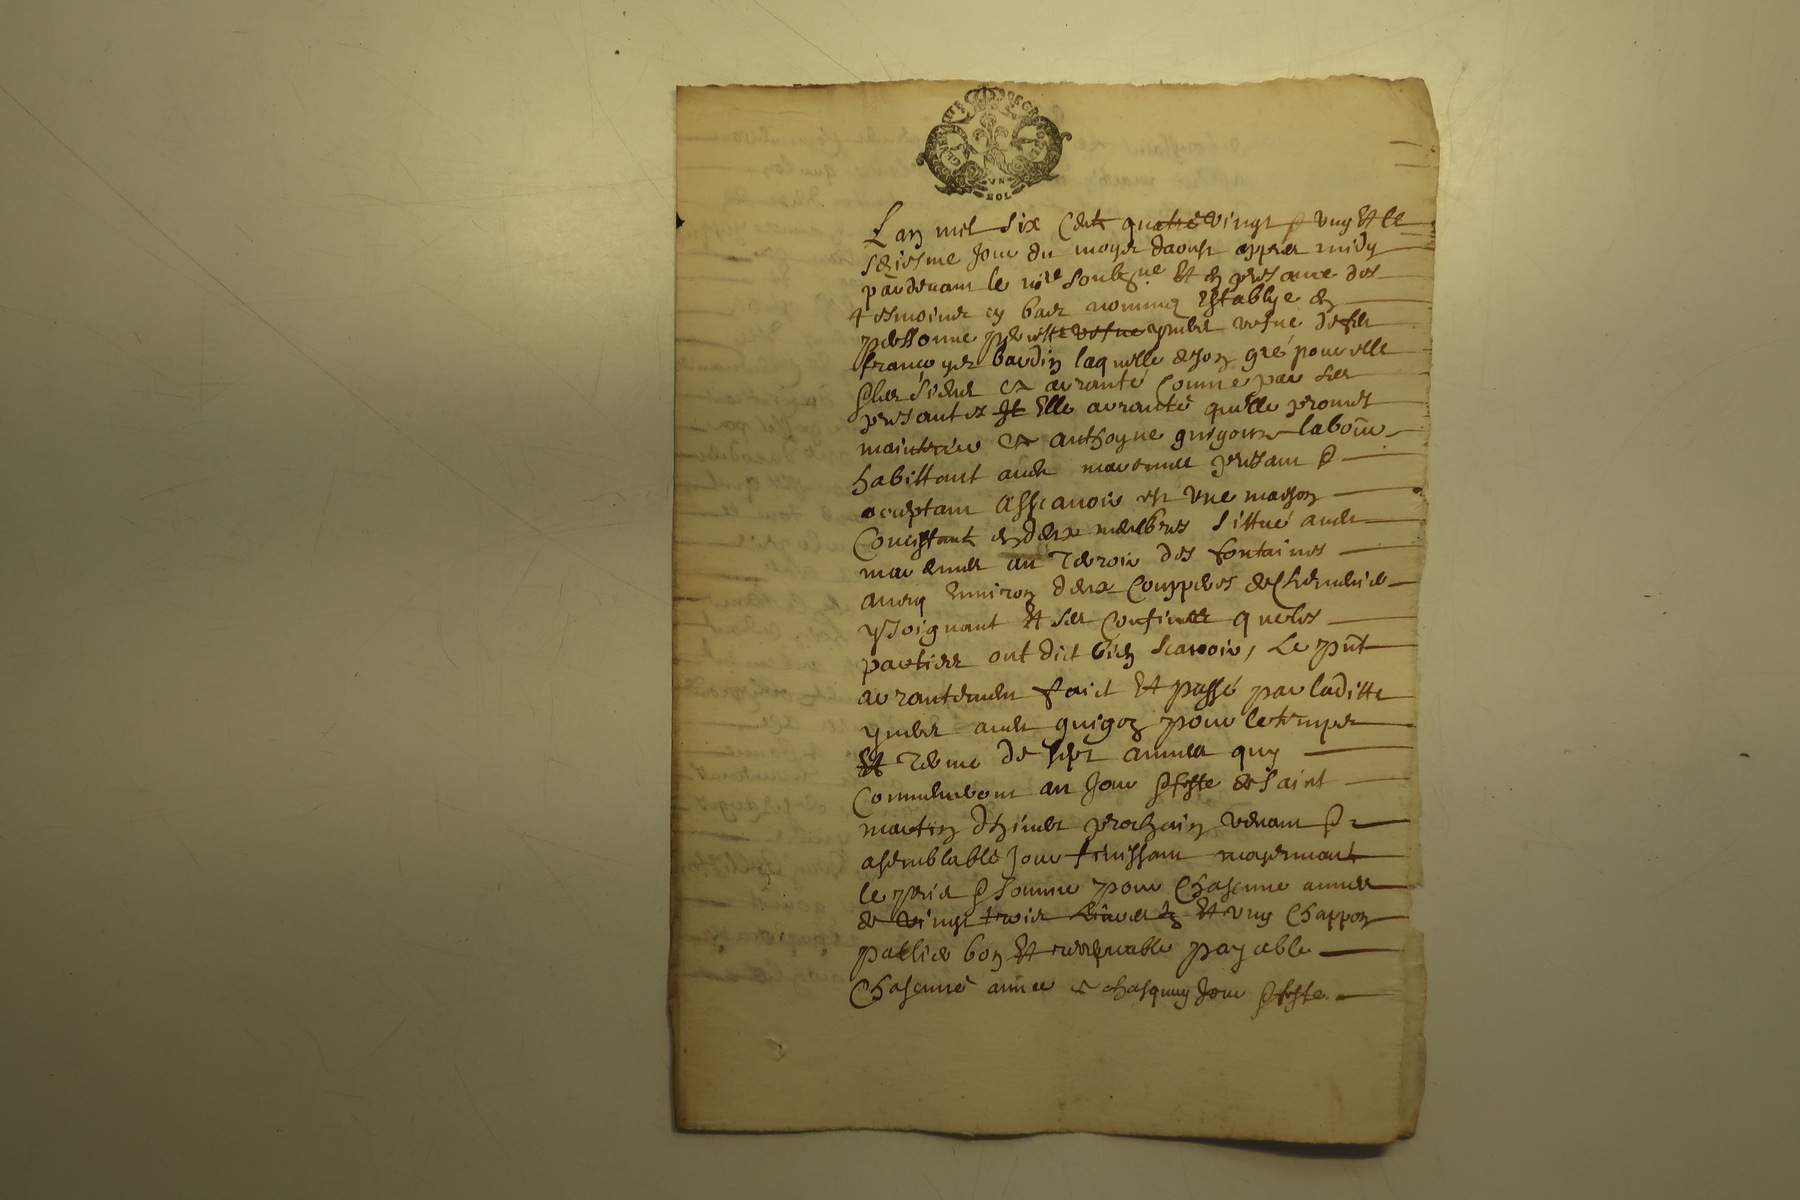 UN
SOL
Lan mil six Cent quatre vingt & ung Et le
seiziesme Jour du moys daoust appres midy
pardevant le nre soubzne Et en presance des
tesmoins cy bas nommes Establye en
personne ymbert vefve de feu
francoys bardin laquelle de son gré pour elle
& les siens a arranté Comme par ses
presantes Elle arrante quelle promet
maintenir a anthoyne guigon labour
habittant aud presant &
acceptant Assavoir est Une maison
Concistant en deux membres sittué aud
au Terroir des fontaines
avecq Environ deux Coupperes de
y Joignant Et ses Confins que les
parties ont dict bien scavoir, Le pnt
arrantement faict Et passé par laditte
ymbert aud guigon pour le temps
Et Terme de sept annees quy
Commenceront au Jour & feste de saint
martin dhiver prochain venant &
a semblable Jour finissant moyenant
le pris & somme pour Chascune annee
de vingt trois Livres Et ung Chappon
paillie bon Et recepvable payable
Chascune annee a chasquung Jour & feste